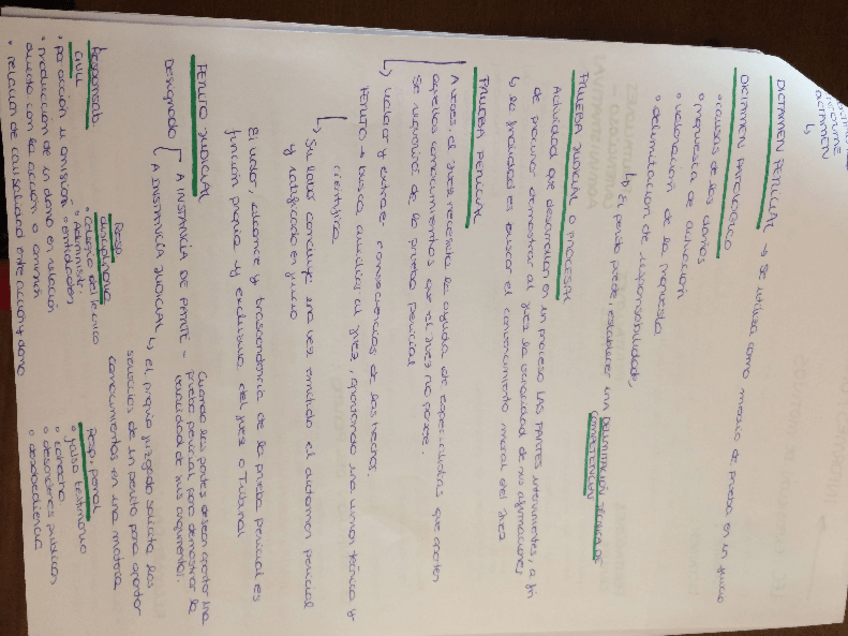 INFORME
DICTAMEN
↳
DICTAMEN PERICIAL → se utiliza como medio de prueba en un juicio
DICTAMEN PATOLÓGICO
• causas de los daños
• propuesta de actuación
• valoración de la propuesta
• delimitación de responsabilidades
↳ El perito puede establecer una DELIMITACIÓN TÉCNICA DE
COMPETENCIAS
PRUEBA JUDICIAL O PROCESAL
Actividad que desarrollan en un proceso LAS PARTES intervinientes, a fin
de procurar demostrar al juez la veracidad de sus afirmaciones
↳ la finalidad es buscar el convencimiento moral del juez
PRUEBA PERICIAL
A veces, el juez necesita la ayuda de especialistas que aporten
aquellos conocimientos que el juez no posee.
Se requerirá de la prueba pericial
↳ valorar y extraer consecuencias de los hechos.
PERITO → busca auxiliar al juez, aportando una visión técnica y
científica
↳ Su labor concluye una vez emitido el dictamen pericial
y ratificado en juicio
El valor, alcance y trascendencia de la prueba pericial es
función propia y exclusiva del juez o Tribunal
PERITO JUDICIAL
Designado
A INSTANCIA DE PARTE - Cuando las partes desean aportar una
prueba pericial para demostrar la
veracidad de sus argumentos.
A INSTANCIA JUDICIAL
↳ el propio juzgado solicita los
servicios de un perito para aportar
conocimientos en una materia
Responsab.
CIVIL
• por acción u omisión
• producción de un daño en relación
directa con la acción o omisión
• relación de causalidad entre acción y daño
Resp.
disciplinaria
• Colegio del técnico
• Administr.
• entidades
Resp. penal
• falso testimonio
• cohecho
• desórdenes públicos
• desobediencia